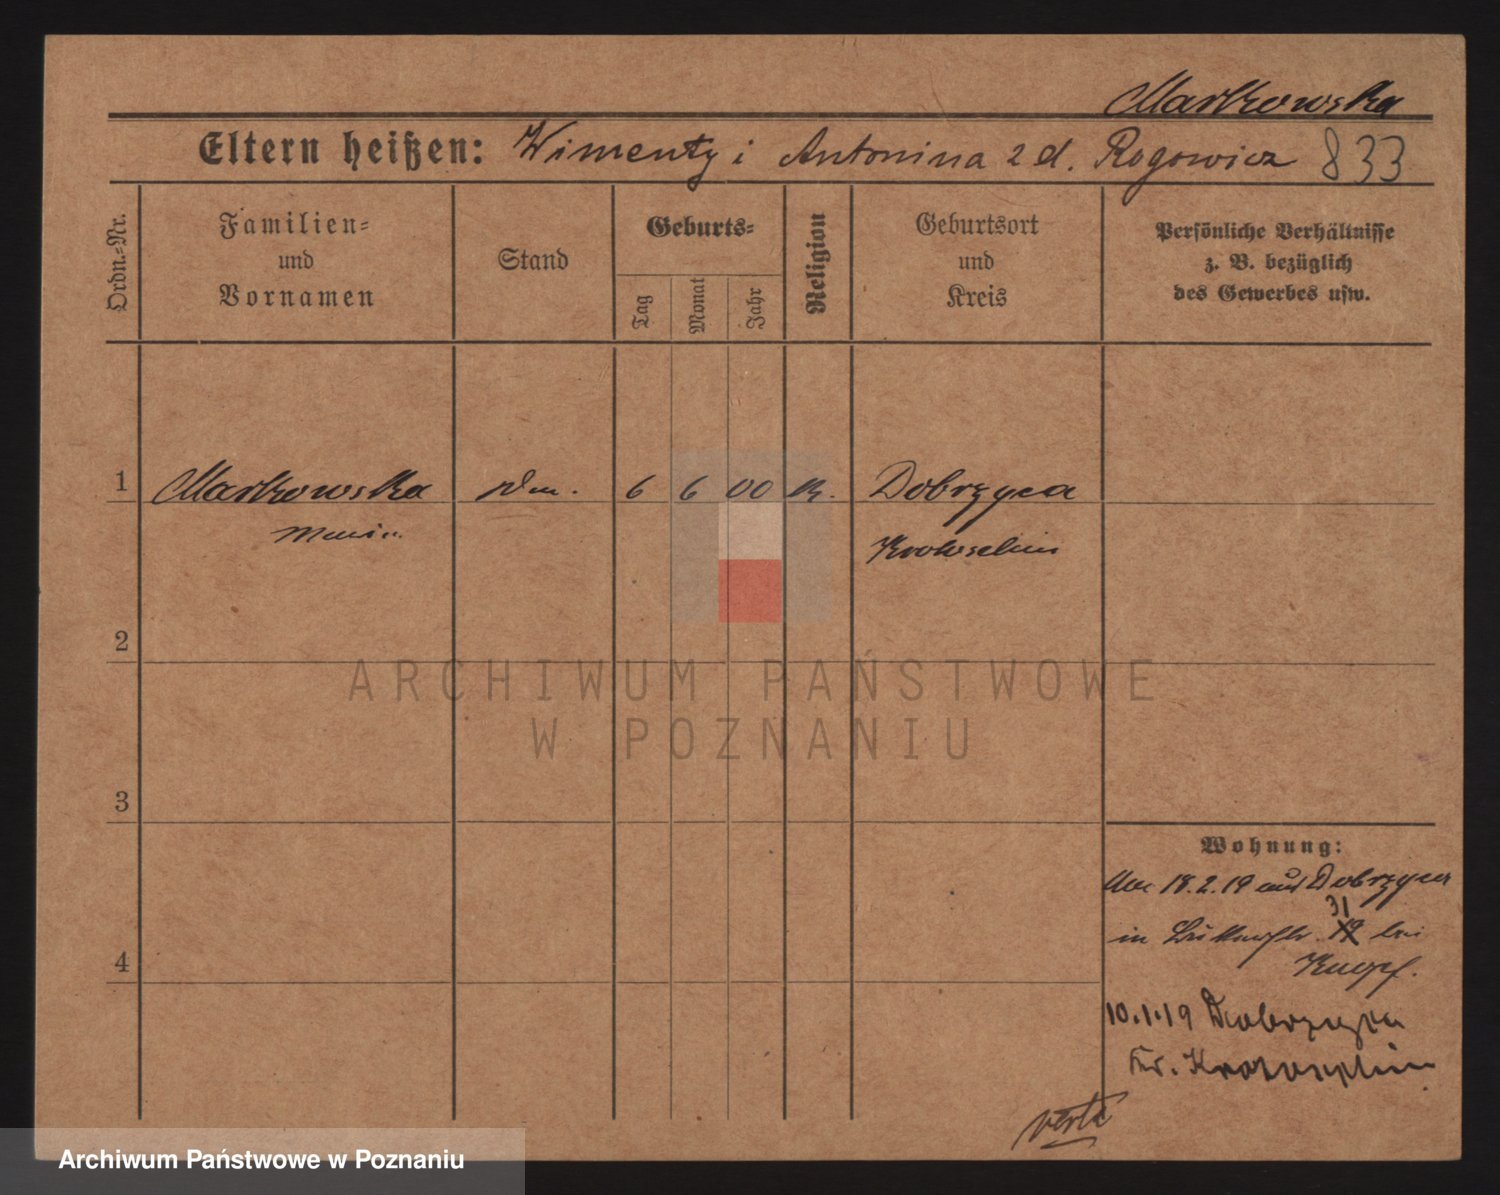 Markowska
Eltern heißen: Wincenty i Antonina z d. Rogowicz 833
Ordn.-Nr.
Familien-
und
Vornamen
Stand
Geburts-
Tag
Monat
Jahr
Religion
Geburtsort
und
Kreis
Persönliche Verhältnisse
z. B. bezüglich
des Gewerbes usw.
1 Markowska 6 6 00 k. Dobrzyca
Maria Krotoschin
2
3
4
Wohnung:
18.2.19 aus Dobrzyca
in 31 19 bei
Knopf.
10.1.19 Dobrzyca
Kr. Krotoschin
verte
ARCHIWUM PAŃSTWOWE
W POZNANIU
Archiwum Państwowe w Poznaniu